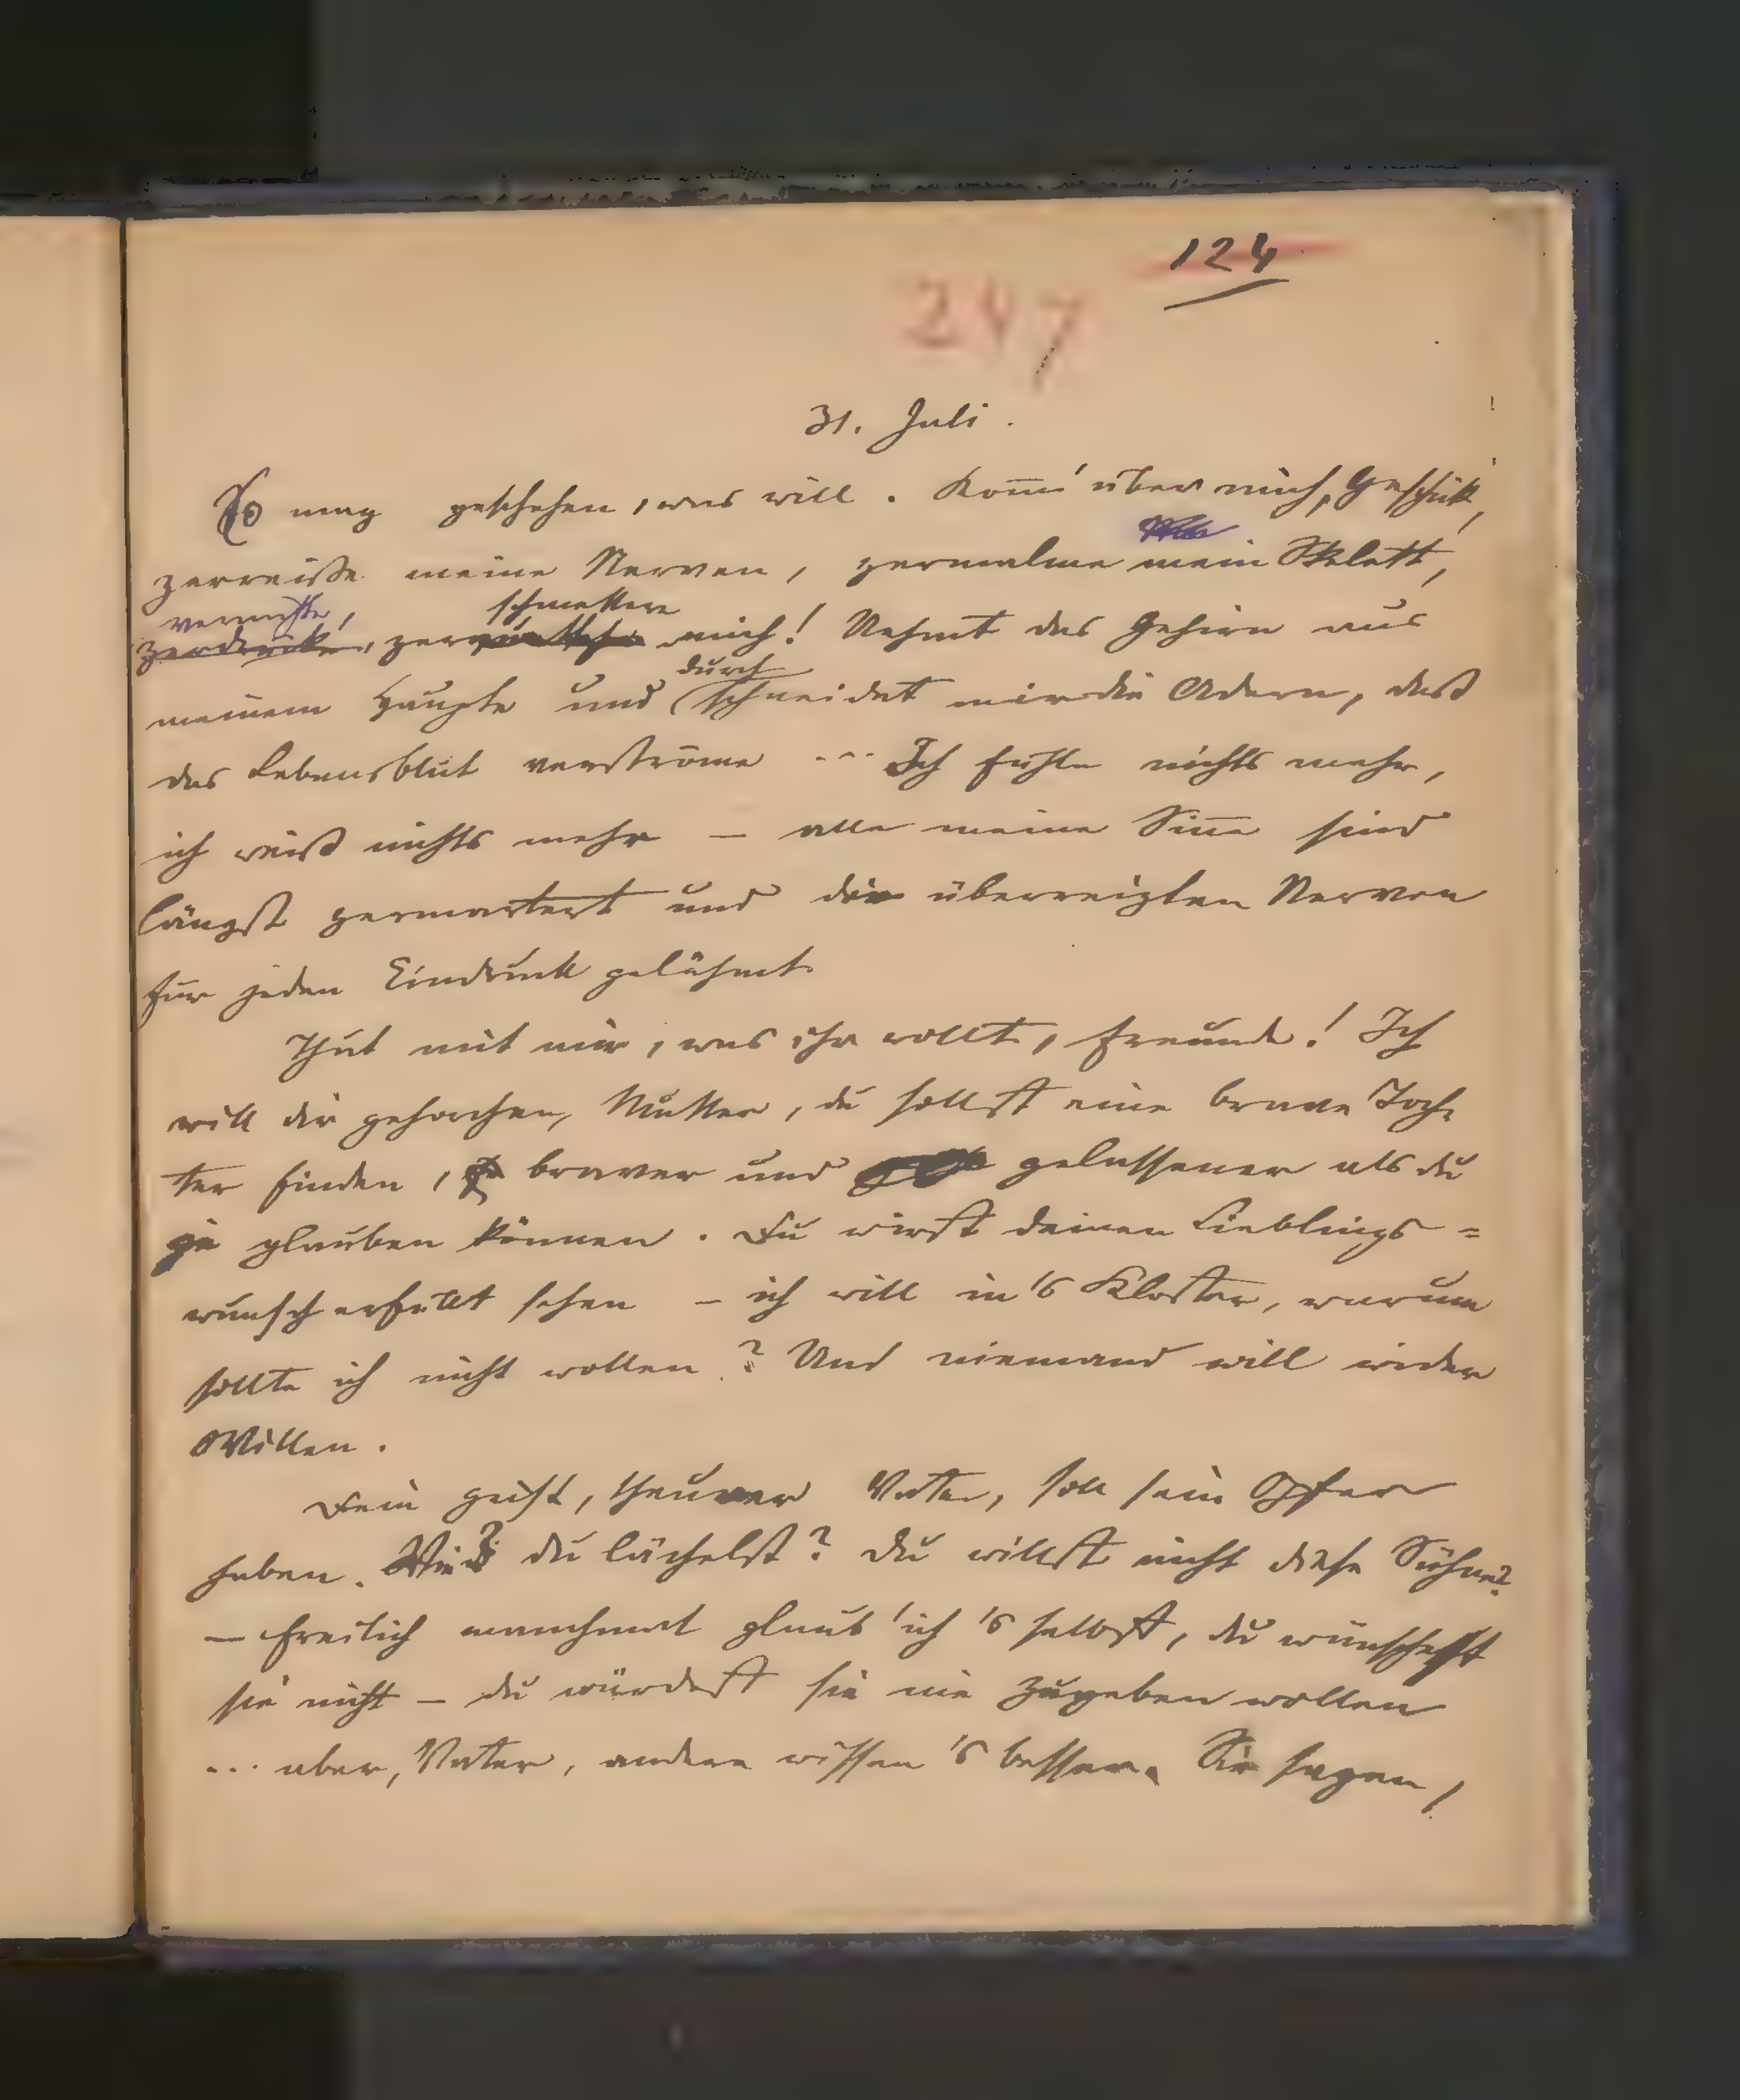 124
247
31. Juli.
So mag geschehen, was will. Kom̄' über mich, Geschick,
zerreiße meine Nerven, zermalme mein Skelett,
vernichte, schmettere
zerdrücke, zer mich! Nehmt das Gehirn aus
durch
meinem Haupte und schneidet mir die Adern, daß
das Lebensblut verströme ... Ich fühle nichts mehr,
ich weiß nichts mehr – alle meine Sin̄e sind
längst zermartert und die überreizten Nerven
für jeden Eindruck gelähmt.
Thut mit mir, was ihr wollt, Freunde! Ich
will dir gehorchen, Mutter, du sollst eine brave Toch-
ter finden, braver und gelassener als du
je glauben können. Du wirst deinen Lieblings=
wunsch erfüllt sehen – ich will in's Kloster, warum
sollte ich nicht wollen? Und niemand will wider
Willen.
Dein Geist, theurer Vater, soll sein Opfer
haben. Wie? du lächelst? Du willst nicht diese Sühne?
– Freilich manchmal glaub' ich 's selbst, du wünschest
sie nicht – du würdest sie nie zugeben wollen
... aber, Vater, andere wissen 's besser. Sie sagen,